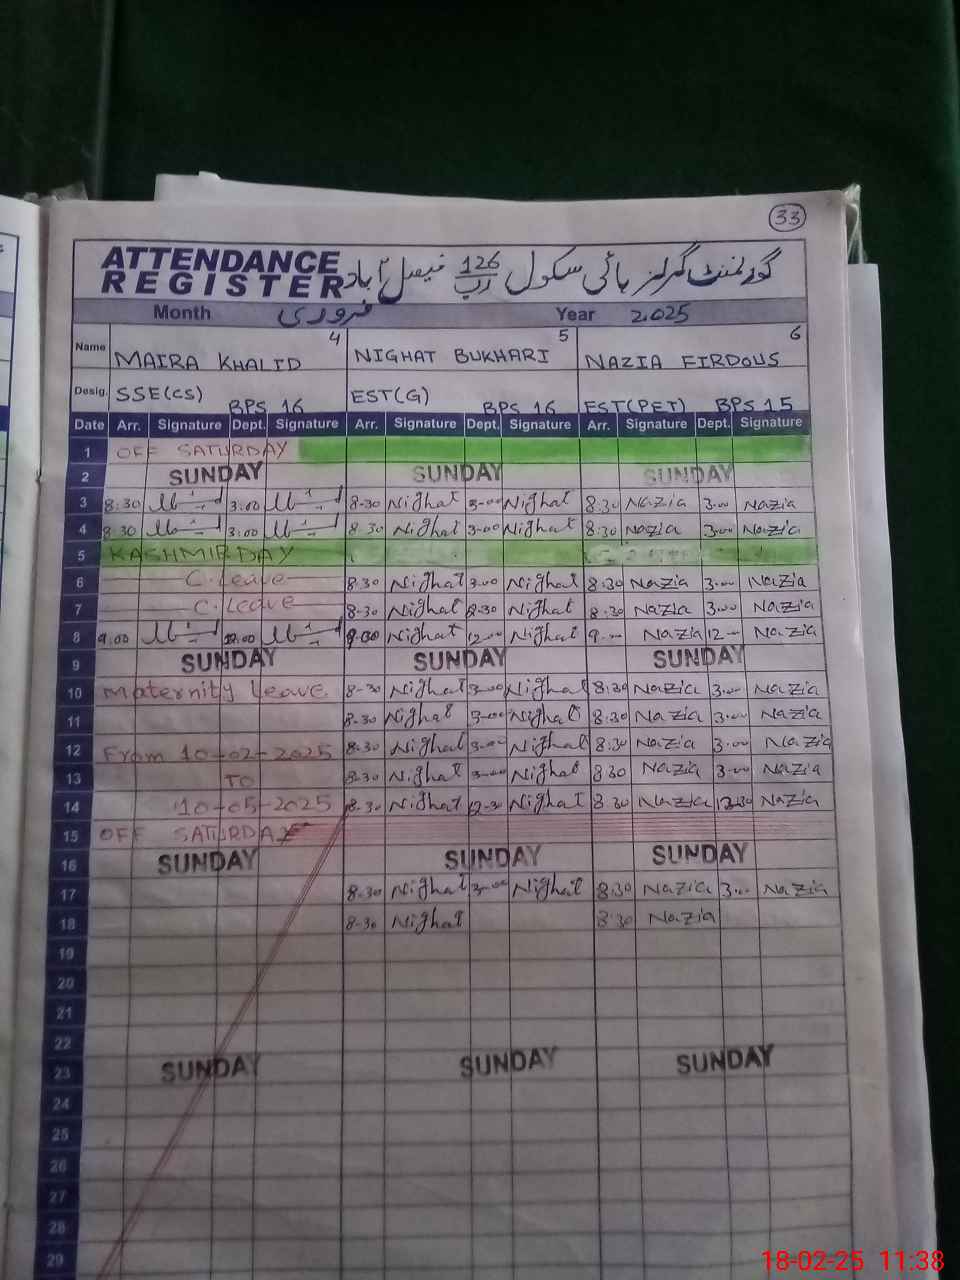 33
ATTENDANCE REGISTER گورنمنٹ گرلز ہائی سکول 126 رب فیصل آباد
Month فروری Year 2025
Name MAIRA KHALID 4 NIGHAT BUKHARI 5 NAZIA FIRDOUS 6
Desig. SSE(CS) BPS 16 EST(G) BPS 16 EST(PET) BPS 15
Date Arr. Signature Dept. Signature Arr. Signature Dept. Signature Arr. Signature Dept. Signature
1 OFF SATURDAY
2 SUNDAY SUNDAY SUNDAY
3 8:30 3:00 8-30 Nighat 3-00 Nighat 8:30 Nazia 3:00 Nazia
4 8:30 3:00 8:30 Nighat 3-00 Nighat 8:30 Nazia 3:00 Nazia
5 KASHMIR DAY
6 C. Leave 8:30 Nighat 3-00 Nighat 8:30 Nazia 3:00 Nazia
7 C. Leave 8-30 Nighat 12-30 Nighat 8:30 Nazia 3:00 Nazia
8 9:00 12:00 Nighat 12-00 Nighat 9-00 Nazia 12-00 Nazia
9 SUNDAY SUNDAY SUNDAY
10 Maternity Leave 8-30 Nighat 3-00 Nighat 8:30 Nazia 3:00 Nazia
11 8-30 Nighat 3-00 Nighat 8:30 Nazia 3:00 Nazia
12 From 10-02-2025 8:30 Nighat 3-00 Nighat 8:30 Nazia 3:00 Nazia
13 TO 8:30 Nighat 3-00 Nighat 8:30 Nazia 3-00 Nazia
14 10-05-2025 8-30 Nighat 12-30 Nighat 8:30 Nazia 12:30 Nazia
15 OFF SATURDAY
16 SUNDAY SUNDAY SUNDAY
17 8:30 Nighat 3-00 Nighat 8:30 Nazia 3:00 Nazia
18 8-30 Nighat 8:30 Nazia
19
20
21
22
23 SUNDAY SUNDAY SUNDAY
24
25
26
27
28
29
18-02-25 11:38